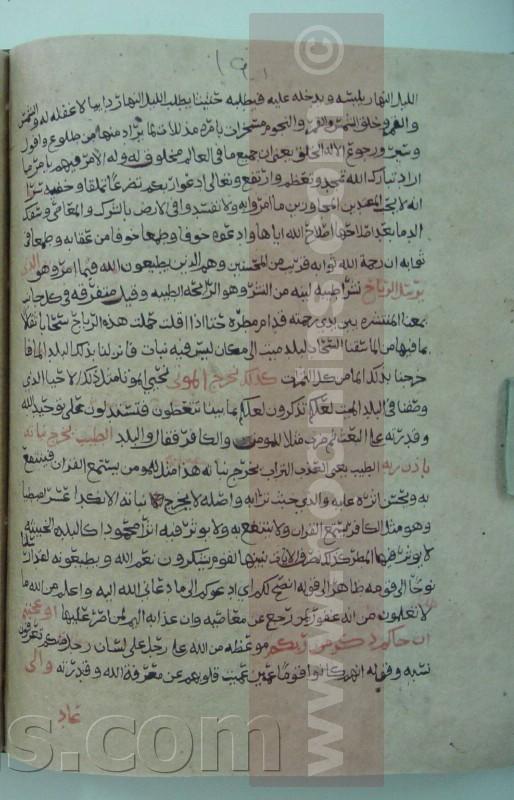 ١٩٠
الليل النهار يلبسه ويدخله عليه فيطلبه حثيثا يطلب الليل النهار دايبا لا غفله له والشمس
والقمر وخلق الشمس والقمر والنجوم مسخرات بامره مذللات لما يراد منها من طلوع وافول
وسير ورجوع الا له الخلق يعني ان جميع ما في العالم مخلوق له وله الامر فيهم يامر بما
اراد تبارك الله تمجد وتعظم وارتفع وتعالى ادعوا ربكم تضرعا تملقا وخفيه سرا
انه لا يحب المعتدين المجاوزين ما امروا به ولا تفسدوا في الارض بالشرك والمعاصي وسفك
الدما بعد اصلاحها اصلاح الله اياها وادعوه خوفا وطمعا خوفا من عقابه وطمعا في
ثوابه ان رحمة الله ثوابه قريب من المحسنين وهم الذين يطيعون الله فيما امر وهو الذي
يرسل الرياح نشرا طيبه لينه من النشر وهو الرايحه الطيبه وقيل متفرقه في كل جانب
بمعنا المنتشره بين يدي رحمته قدام مطره حتا اذا اقلت حملت هذه الرياح سحابا ثقالا
بما فيها من الما سقنا السحاب لبلد ميت الى مكان ليس فيه نبات فانزلنا بذلك البلد الما فا
خرجنا بذلك الما من كل الثمرات كذلك نخرج الموتى نحيي الموتا مثل ذلك الاحيا الذي
وصفنا في البلد الميت لعلكم تذكرون لعلكم بما بينا تتعظون فتستدلون على توحيد الله
وقدرته على البعث ثم ضرب مثلا للمومن والكافر فقال والبلد الطيب يخرج نباته
باذن ربه الطيب يعني العذب التراب يخرج نباته هذا مثل المومن يستمع القران فينتفع
به ويحسن اثره عليه والذي خبث ترابه واصله لا يخرج نباته الا نكدا عسرا مبطيا
وهو مثل الكافر يستمع القران ولا ينتفع به ولا يوثر فيه اثرا محمودا كالبلد الخبيث
لا يوثر فيها المطر كذلك نصرف الايات نبينها لقوم يشكرون نعم الله ويطيعونه لقد ارسلنا
نوحا الى قومه ظاهر الى قوله انصح لكم اي ادعوكم الى ما دعاني الله اليه واعلم من الله ما
لا تعلمون من الله غفور لمن رجع عن معاصيه وان عذابه اليم لمن اصر عليها اوعجبتم
ان جاكم ذكر من ربكم موعظه من الله على رجل على لسان رجل منكم تعرفون
نسبه وقوله انهم كانوا قوما عمين عميت قلوبهم عن معرفة الله وقدرته والى
عاد
© www.s.com